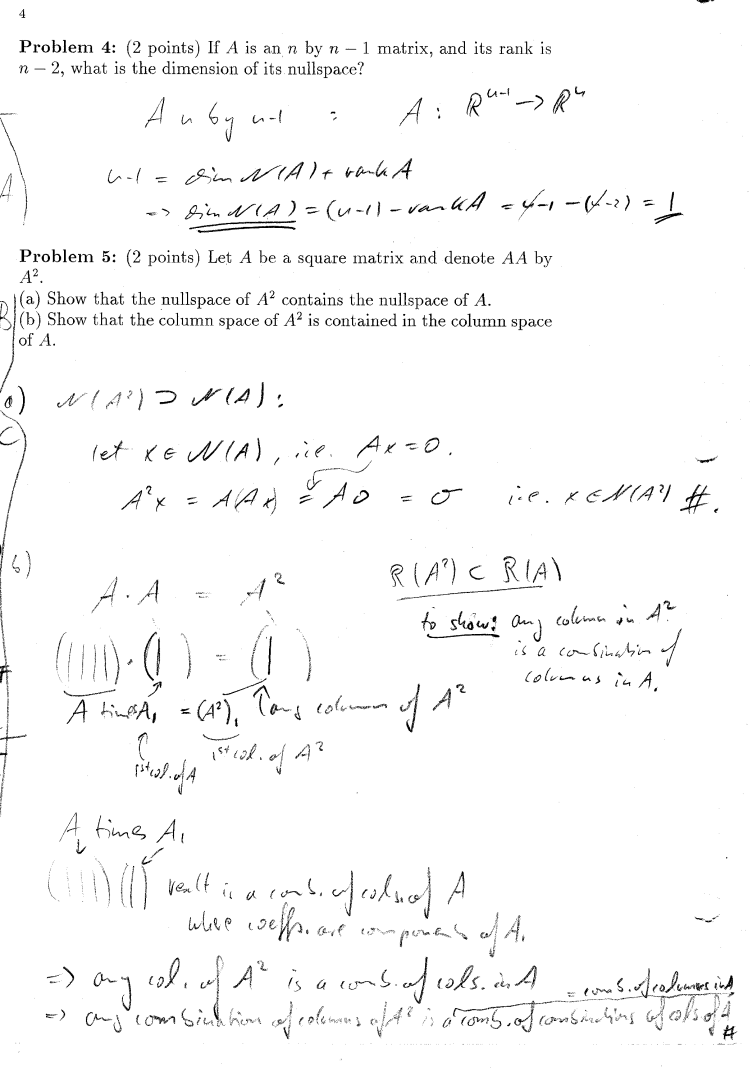 4
Problem 4: (2 points) If A is an n by n − 1 matrix, and its rank is
n − 2, what is the dimension of its nullspace?
A n by n-1 : A : ℝⁿ⁻¹ → ℝⁿ
n-1 = dim N(A) + rank A
=> dim N(A) = (n-1) - rank A = n-1 - (n-2) = 1
A
Problem 5: (2 points) Let A be a square matrix and denote AA by
A².
(a) Show that the nullspace of A² contains the nullspace of A.
(b) Show that the column space of A² is contained in the column space
of A.
B
a) N(A²) ⊃ N(A) :
C
let x ∈ N(A), i.e. Ax = 0.
A²x = A(Ax) = A0 = 0 i.e. x ∈ N(A²) #.
b)
A · A = A²
R(A²) ⊂ R(A)
to show: any column in A²
is a combination of
columns in A.
(||||) · (| ) = (| )
A times A₁ = (A²)₁ any column of A²
1st col. of A
1st col. of A²
A times A₁
(||||) (|) result is a comb. of cols. of A
where coeffs. are components of A₁
=> any col. of A² is a comb. of cols. in A
= comb. of columns in A
=> any combination of columns of A² is a comb. of combinations of cols of A
#